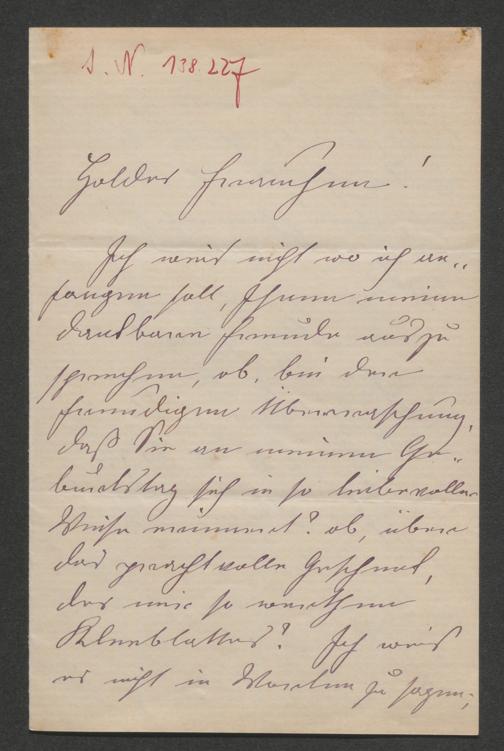 I. N. 138.227
Holdes Frauchen!
Ich weis nicht wo ich an„
fangen soll, Ihnen meine
dankbare Freude auszu
sprechen, ob, bei der
freudigen Überraschung,
daß Sie an meinem Ge„
burtstag sich in so liebevoller
Weise erinnert? ob, über
das prachtvolle Geschenk,
des mir so werthen
Kleeblattes? Ich weis
es nicht in Worten zu sagen;